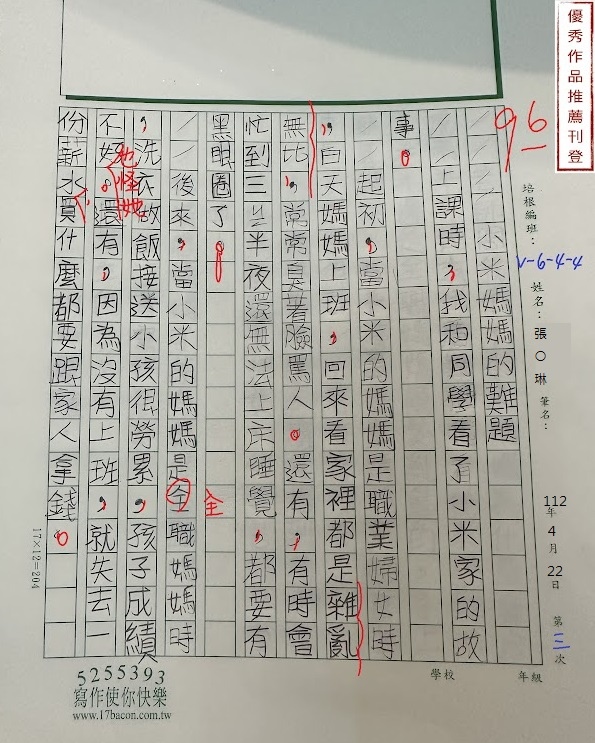 優秀作品推薦刊登
96
培根編班：V-6-4-4
姓名：張〇琳 筆名：
112年4月22日 第三次
學校 年級
小米媽媽的難題
上課時，我和同學看了小米家的故
事。
起初，當小米的媽媽是職業婦女時
，白天媽媽上班，回來看家裡都是雜亂
無比，常常臭著臉罵人。還有，有時會
忙到三半夜還無法上床睡覺，都要有
黑眼圈了。
全
後來，當小米的媽媽是全職媽媽時
，洗衣做飯接送小孩很勞累，孩子成績
不好也怪她。還有，因為沒有上班，就失去一
份薪水，買什麼都要跟家人拿錢。
17×12=204
5255393
寫作使你快樂
www.17bacon.com.tw